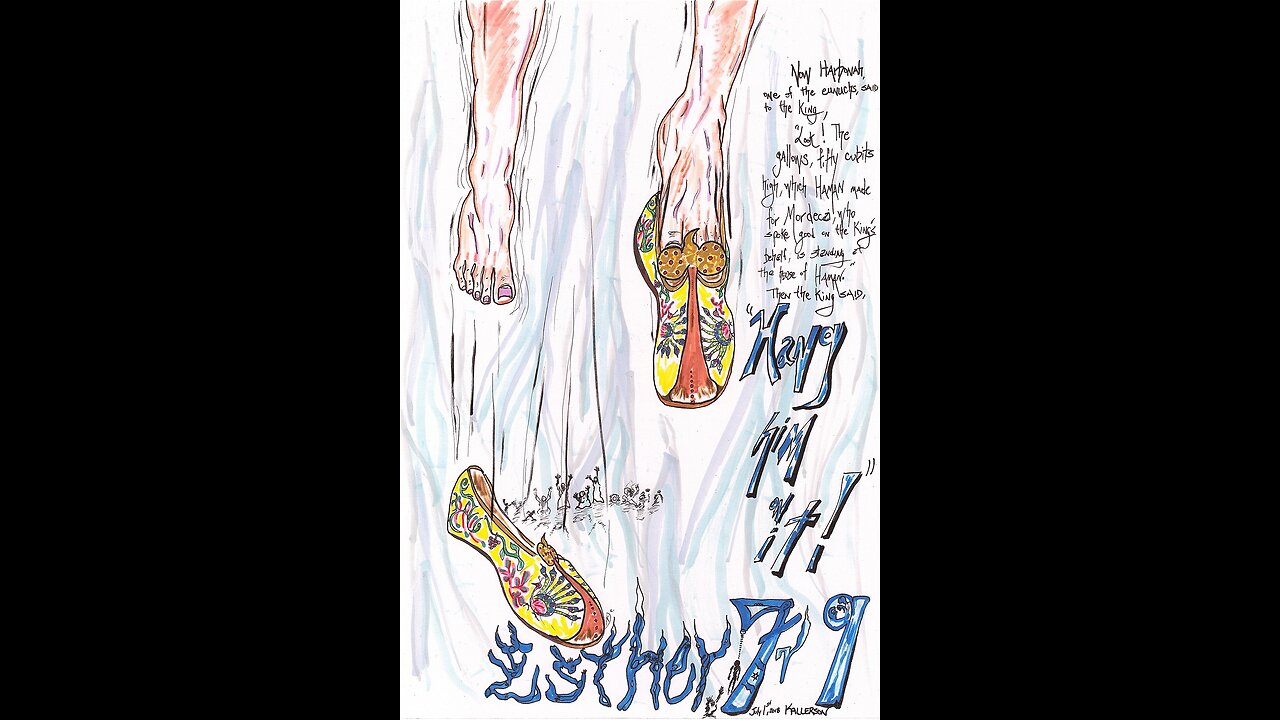 Now Harbonah,
one of the eunuchs, SAID
to the King,
"Look! The
gallows, fifty cubits
high, which HAMAN made
for Mordecai, who
spoke good on the King's
behalf, is standing at
the house of HAMAN."
Then the King SAID,
"Hang
him
on
it!"
Esther 7:9
July 1st, 2018 KALLERSON